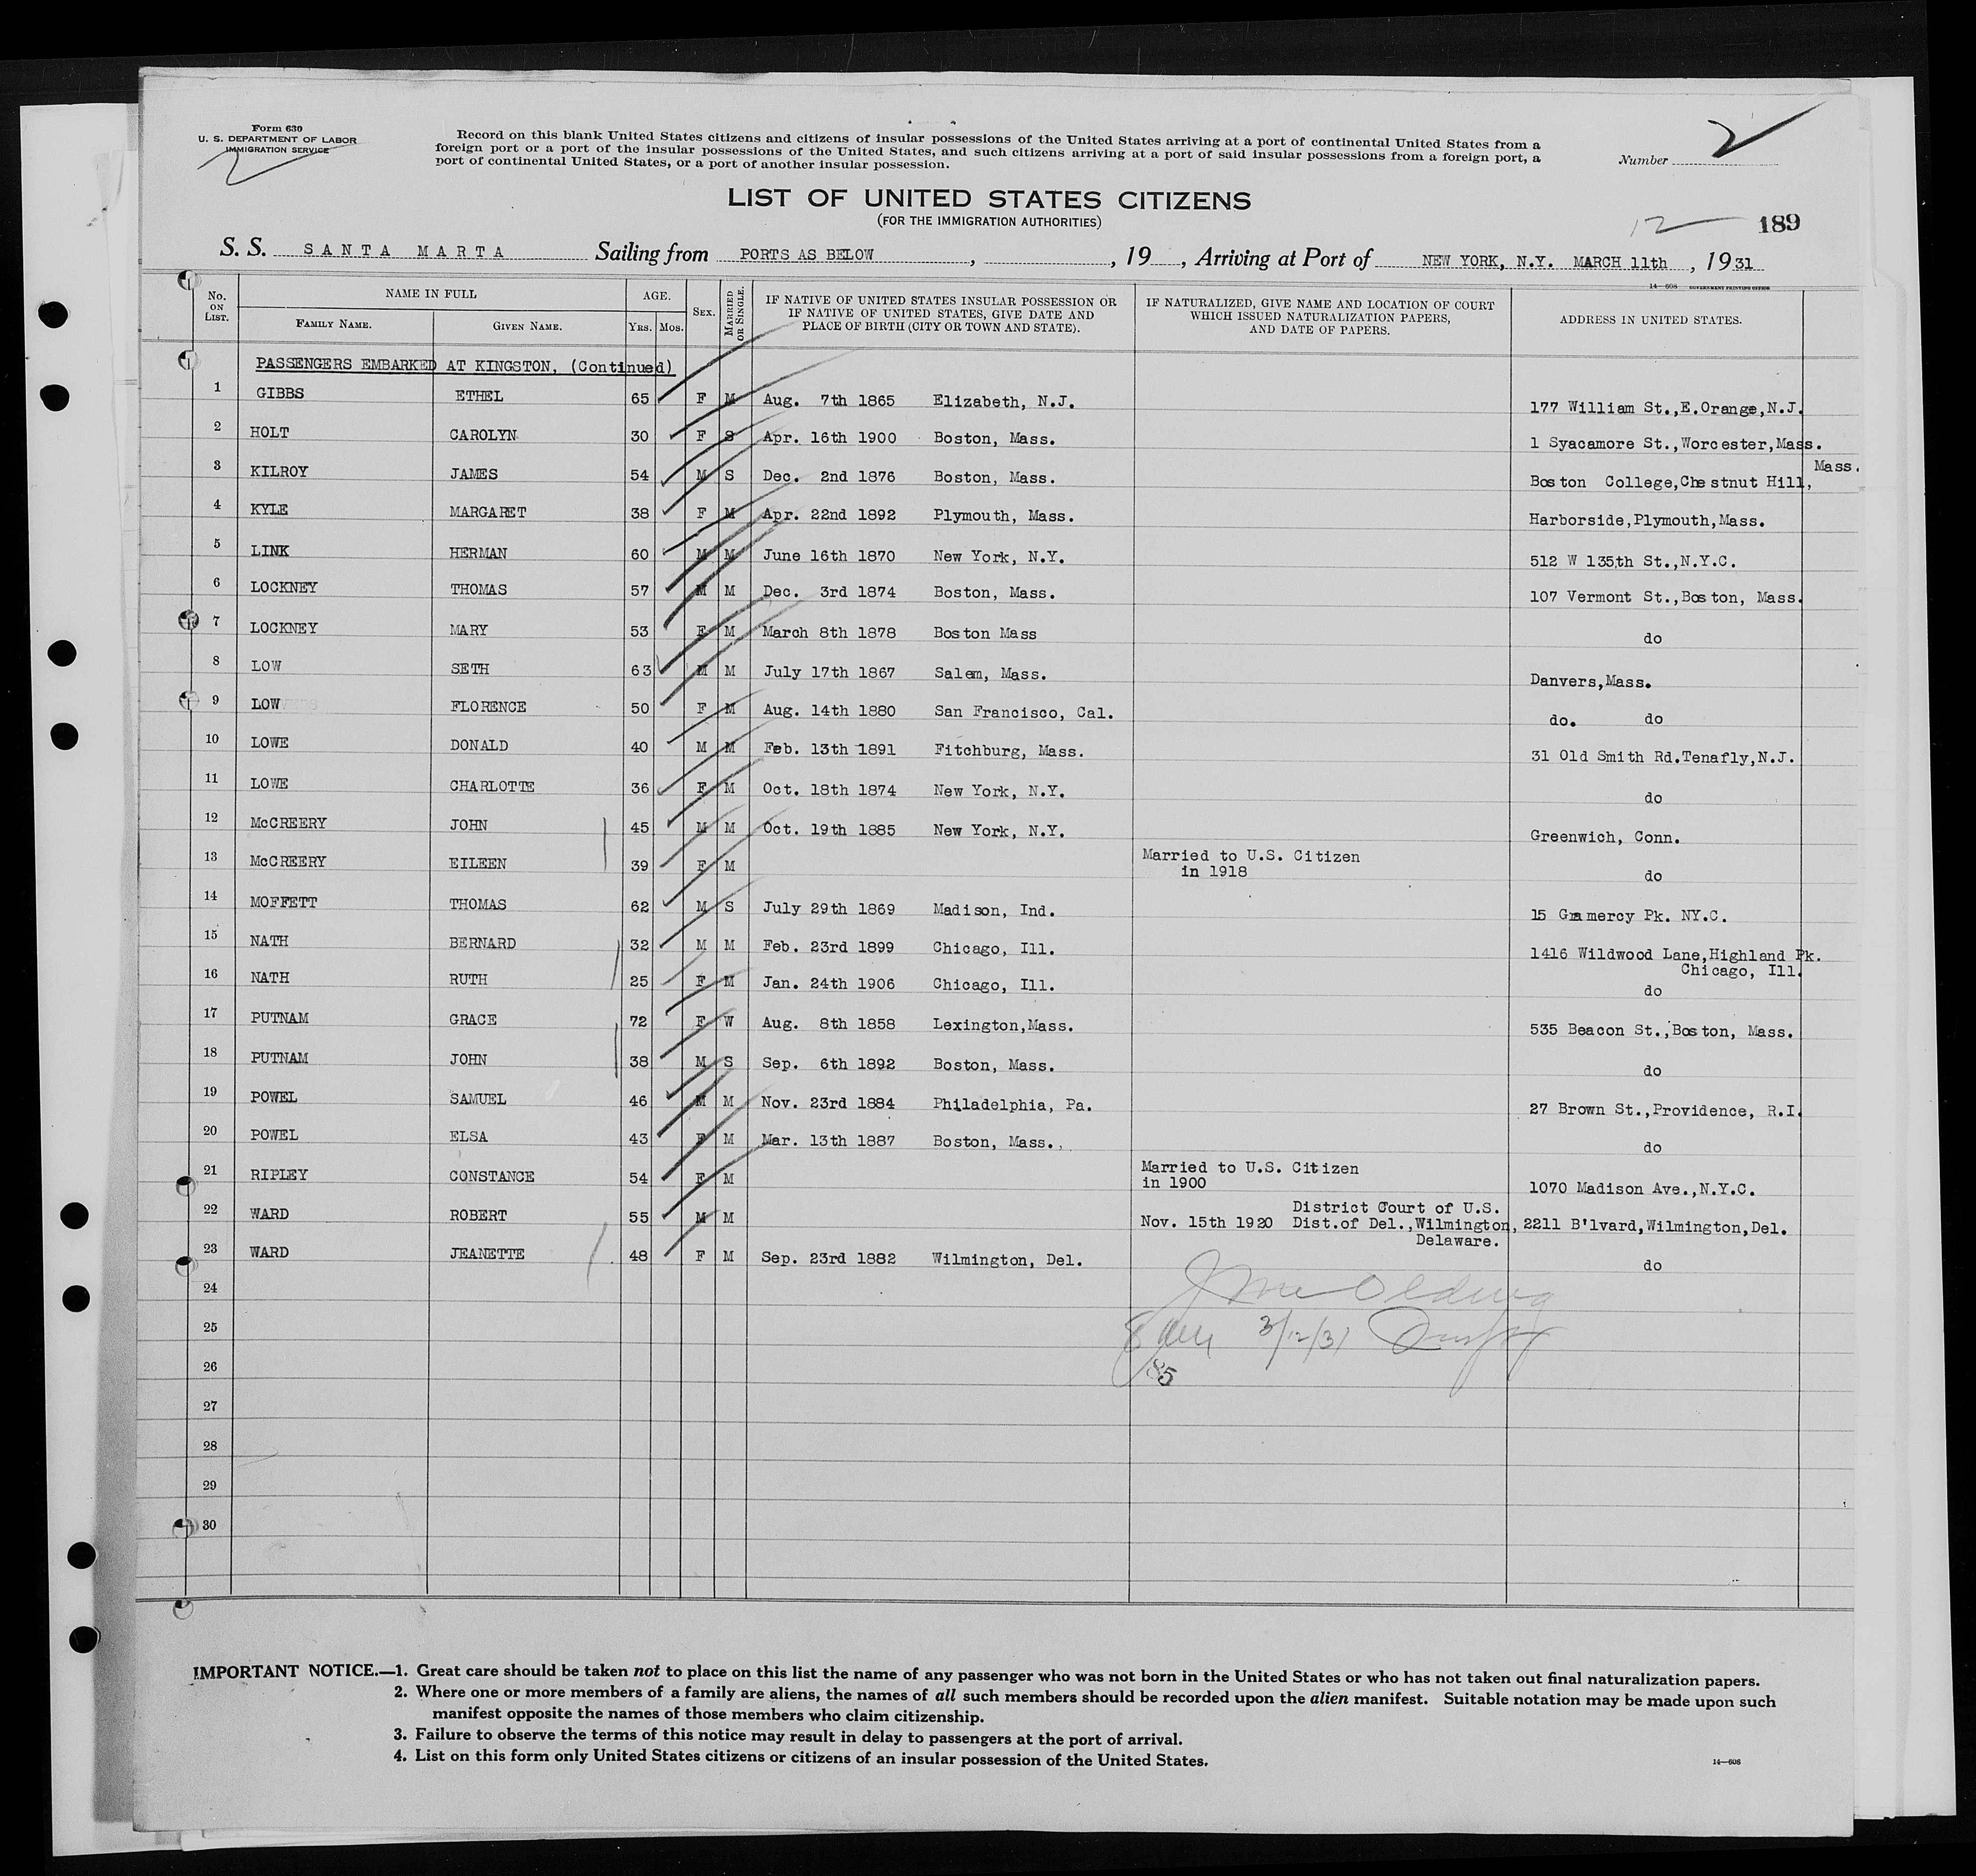 Form 630
U. S. DEPARTMENT OF LABOR
IMMIGRATION SERVICE
2
Record on this blank United States citizens and citizens of insular possessions of the United States arriving at a port of continental United States from a
foreign port or a port of the insular possessions of the United States, and such citizens arriving at a port of said insular possessions from a foreign port, a
port of continental United States, or a port of another insular possession.
Number 2
LIST OF UNITED STATES CITIZENS
(FOR THE IMMIGRATION AUTHORITIES)
12 189
S. S. SANTA MARTA Sailing from PORTS AS BELOW , , 19 , Arriving at Port of NEW YORK, N.Y. MARCH 11th , 1931
14—608 GOVERNMENT PRINTING OFFICE
No. ON LIST. NAME IN FULL FAMILY NAME. GIVEN NAME. AGE. YRS. MOS. SEX. MARRIED OR SINGLE. IF NATIVE OF UNITED STATES INSULAR POSSESSION OR IF NATIVE OF UNITED STATES, GIVE DATE AND PLACE OF BIRTH (CITY OR TOWN AND STATE). IF NATURALIZED, GIVE NAME AND LOCATION OF COURT WHICH ISSUED NATURALIZATION PAPERS, AND DATE OF PAPERS. ADDRESS IN UNITED STATES.
PASSENGERS EMBARKED AT KINGSTON, (Continued)
1 GIBBS ETHEL 65 F M Aug. 7th 1865 Elizabeth, N.J. 177 William St.,E.Orange,N.J.
2 HOLT CAROLYN 30 F S Apr. 16th 1900 Boston, Mass. 1 Syacamore St.,Worcester,Mass.
3 KILROY JAMES 54 M S Dec. 2nd 1876 Boston, Mass. Boston College,Chestnut Hill, Mass.
4 KYLE MARGARET 38 F M Apr. 22nd 1892 Plymouth, Mass. Harborside,Plymouth,Mass.
5 LINK HERMAN 60 M M June 16th 1870 New York, N.Y. 512 W 135th St.,N.Y.C.
6 LOCKNEY THOMAS 57 M M Dec. 3rd 1874 Boston, Mass. 107 Vermont St.,Boston, Mass.
7 LOCKNEY MARY 53 F M March 8th 1878 Boston Mass do
8 LOW SETH 63 M M July 17th 1867 Salem, Mass. Danvers,Mass.
9 LOW FLORENCE 50 F M Aug. 14th 1880 San Francisco, Cal. do. do
10 LOWE DONALD 40 M M Feb. 13th 1891 Fitchburg, Mass. 31 Old Smith Rd.Tenafly,N.J.
11 LOWE CHARLOTTE 36 F M Oct. 18th 1874 New York, N.Y. do
12 McCREERY JOHN 45 M M Oct. 19th 1885 New York, N.Y. Greenwich, Conn.
13 McCREERY EILEEN 39 F M Married to U.S. Citizen in 1918 do
14 MOFFETT THOMAS 62 M S July 29th 1869 Madison, Ind. 15 Gramercy Pk. NY.C.
15 NATH BERNARD 32 M M Feb. 23rd 1899 Chicago, Ill. 1416 Wildwood Lane,Highland Pk. Chicago, Ill.
16 NATH RUTH 25 F M Jan. 24th 1906 Chicago, Ill. do
17 PUTNAM GRACE 72 F W Aug. 8th 1858 Lexington,Mass. 535 Beacon St.,Boston, Mass.
18 PUTNAM JOHN 38 M S Sep. 6th 1892 Boston, Mass. do
19 POWEL SAMUEL 46 M M Nov. 23rd 1884 Philadelphia, Pa. 27 Brown St.,Providence, R.I.
20 POWEL ELSA 43 F M Mar. 13th 1887 Boston, Mass., do
21 RIPLEY CONSTANCE 54 F M Married to U.S. Citizen in 1900 1070 Madison Ave.,N.Y.C.
22 WARD ROBERT 55 M M Nov. 15th 1920 District Court of U.S. Dist.of Del.,Wilmington, Delaware. 2211 B'lvard,Wilmington,Del.
23 WARD JEANETTE 48 F M Sep. 23rd 1882 Wilmington, Del. do
24
25 3/12/31
26 85
27
28
29
30
IMPORTANT NOTICE.—1. Great care should be taken not to place on this list the name of any passenger who was not born in the United States or who has not taken out final naturalization papers.
2. Where one or more members of a family are aliens, the names of all such members should be recorded upon the alien manifest. Suitable notation may be made upon such
manifest opposite the names of those members who claim citizenship.
3. Failure to observe the terms of this notice may result in delay to passengers at the port of arrival.
4. List on this form only United States citizens or citizens of an insular possession of the United States.
14—608